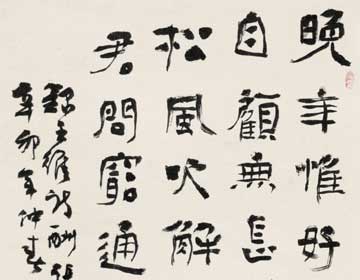 晚年惟好
自顧無長
松風吹解
君問窮通
録王維詩酬張
辛卯年仲春